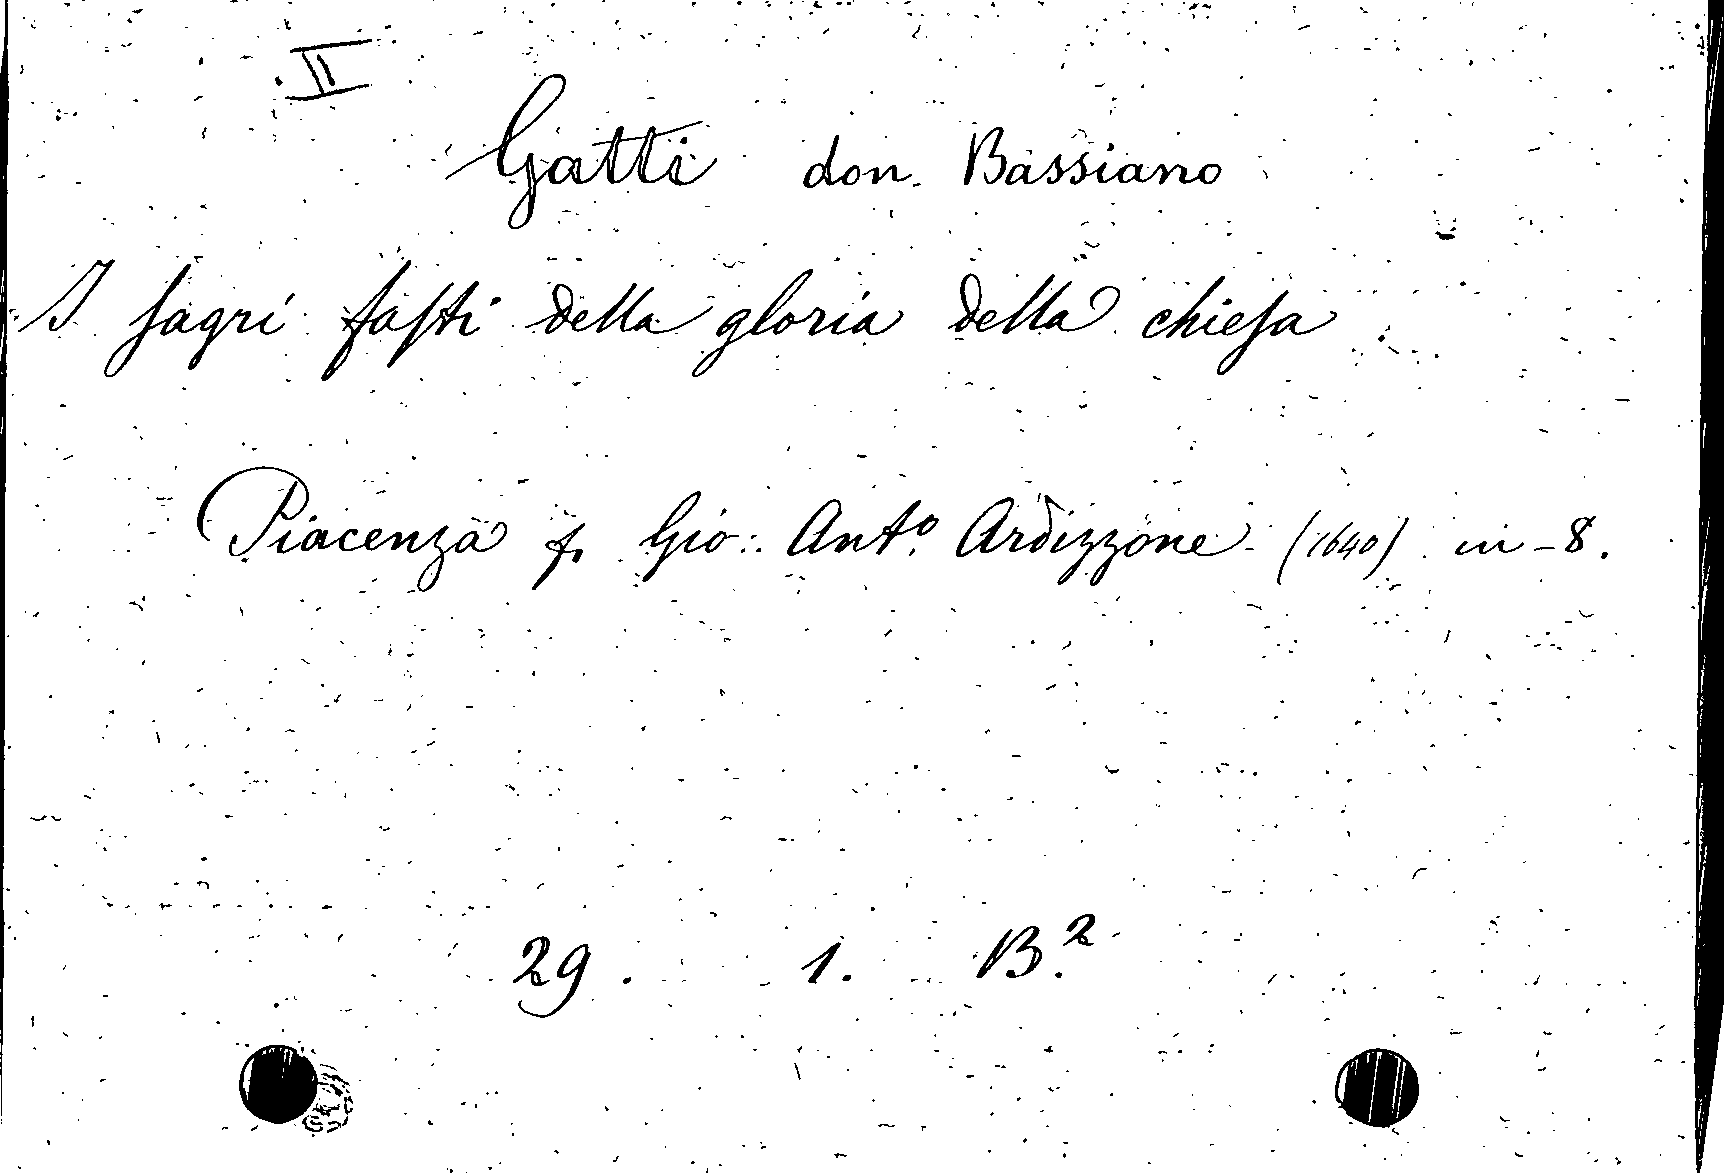 II
Gatti don Bassiano
I sagri fasti della gloria della chiesa
Piacenza p. Gio: Ant.º Ardizzone (1640) in-8.
29. 1. B.²